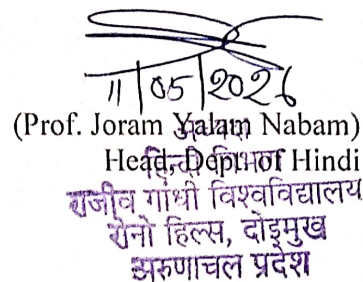 11/05/2026
(Prof. Joram Yalam Nabam)
अध्यक्ष
Head, Deptt. of Hindi
हिन्दी विभाग
राजीव गांधी विश्वविद्यालय
रोनो हिल्स, दोइमुख
अरुणाचल प्रदेश